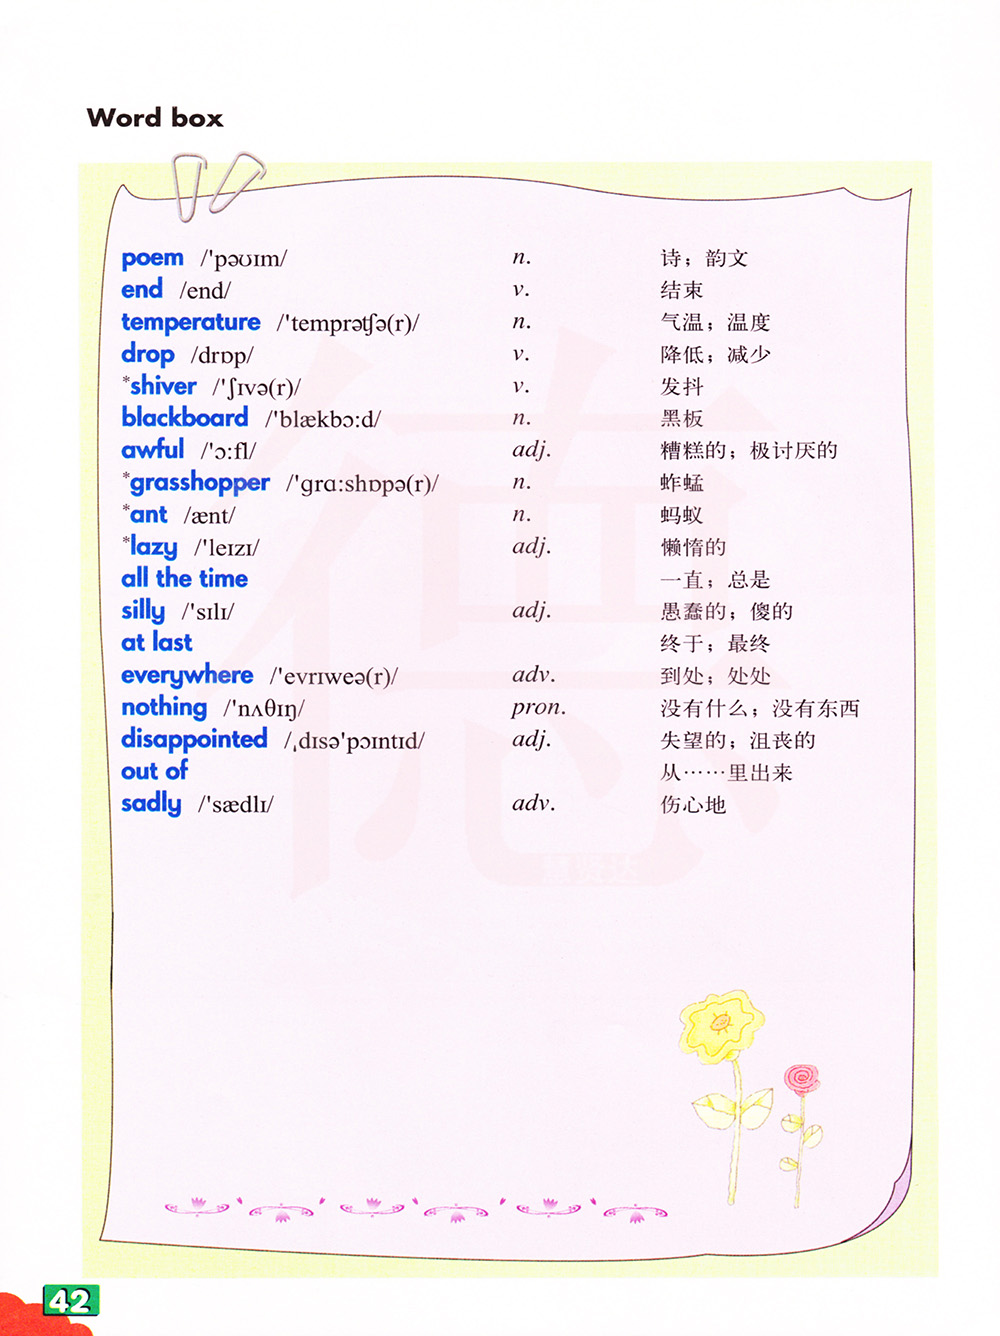 Word box
poem /'pəʊɪm/ n. 诗；韵文
end /end/ v. 结束
temperature /'temprətʃə(r)/ n. 气温；温度
drop /drɒp/ v. 降低；减少
*shiver /'ʃɪvə(r)/ v. 发抖
blackboard /'blækbɔ:d/ n. 黑板
awful /'ɔ:fl/ adj. 糟糕的；极讨厌的
*grasshopper /'ɡrɑ:shɒpə(r)/ n. 蚱蜢
*ant /ænt/ n. 蚂蚁
*lazy /'leɪzɪ/ adj. 懒惰的
all the time 一直；总是
silly /'sɪlɪ/ adj. 愚蠢的；傻的
at last 终于；最终
everywhere /'evrɪweə(r)/ adv. 到处；处处
nothing /'nʌθɪŋ/ pron. 没有什么；没有东西
disappointed /ˌdɪsə'pɔɪntɪd/ adj. 失望的；沮丧的
out of 从……里出来
sadly /'sædlɪ/ adv. 伤心地
德
42